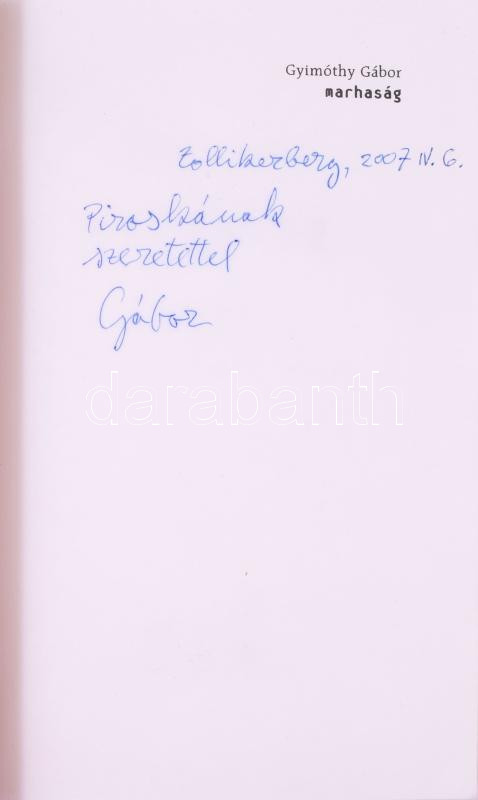 Gyimóthy Gábor
marhaság
Zollikerberg, 2007 IV. 6.
Piroskának
szeretettel
Gábor
darabanth